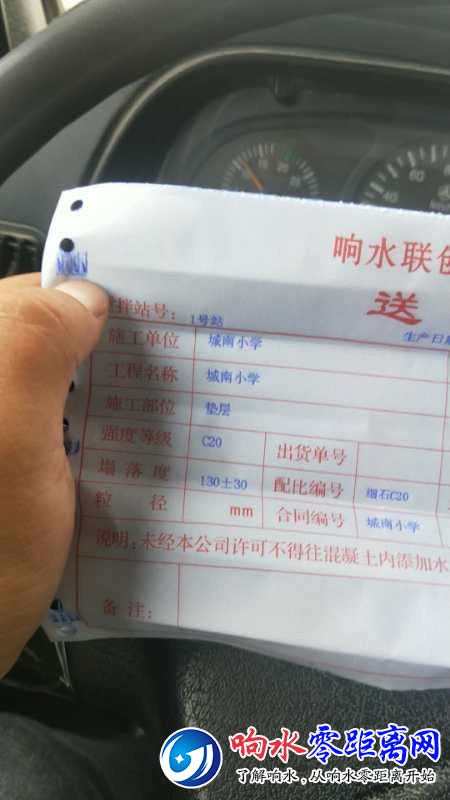 响水联创
送
拌站号: 1号站
生产日期
施工单位 城南小学
工程名称 城南小学
施工部位 垫层
强度等级 C20 出货单号
塌落度 130±30 配比编号 细石C20
粒径 mm 合同编号 城南小学
说明:未经本公司许可不得往混凝土内添加水
备注:
响水零距离网
了解响水,从响水零距离开始